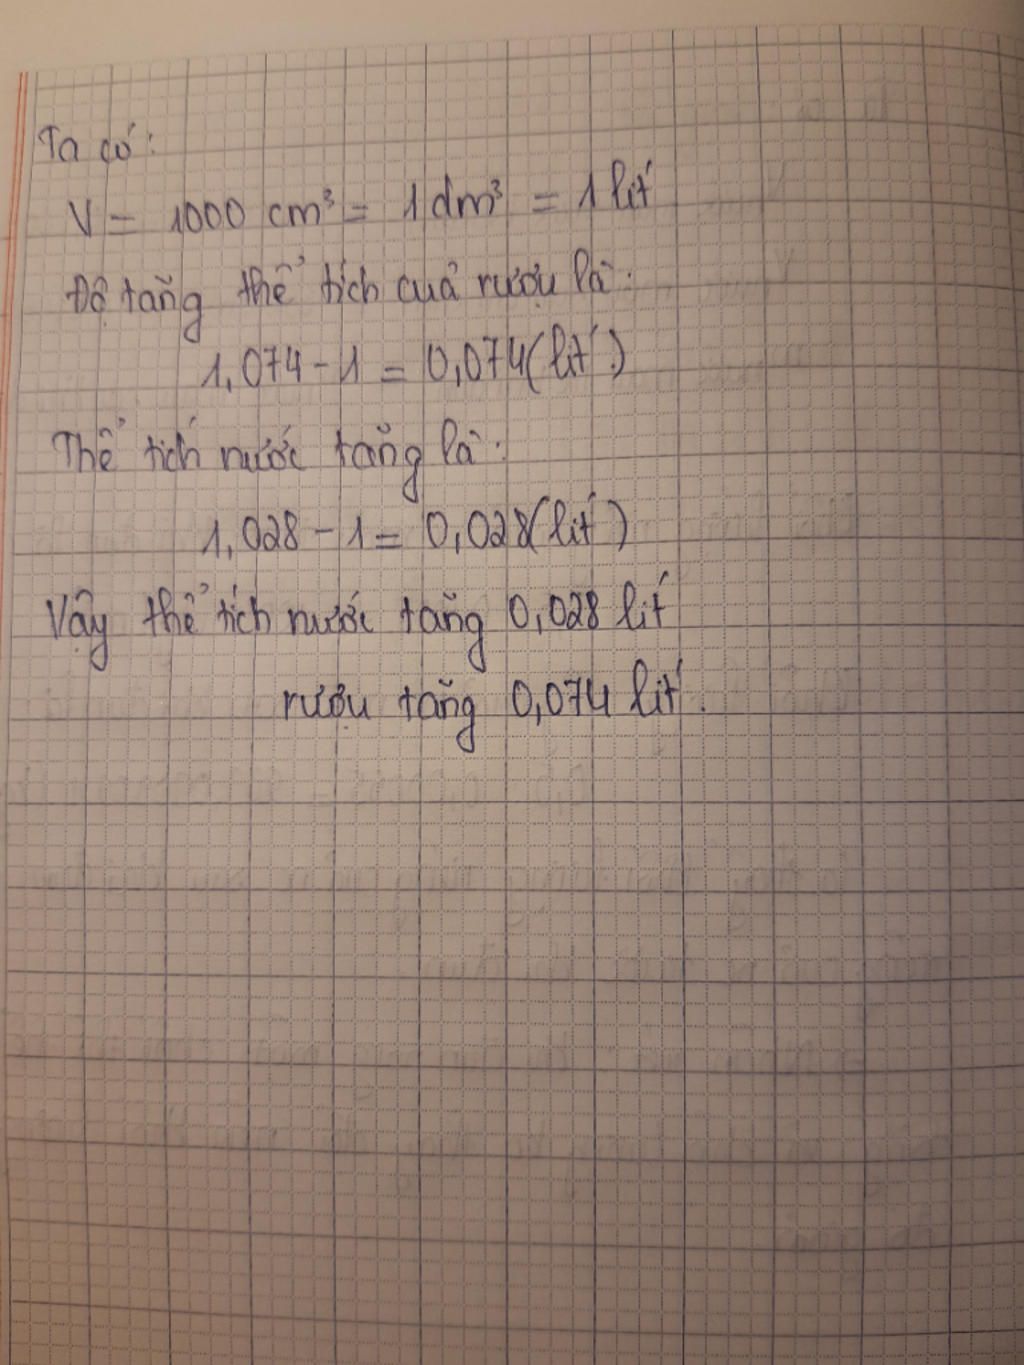 Ta có:
V = 1000 cm³ = 1 dm³ = 1 lít
Độ tăng thể tích của rượu là:
1,074 - 1 = 0,074 (lít)
Thể tích nước tăng là:
1,028 - 1 = 0,028 (lít)
Vậy thể tích nước tăng 0,028 lít
rượu tăng 0,074 lít.